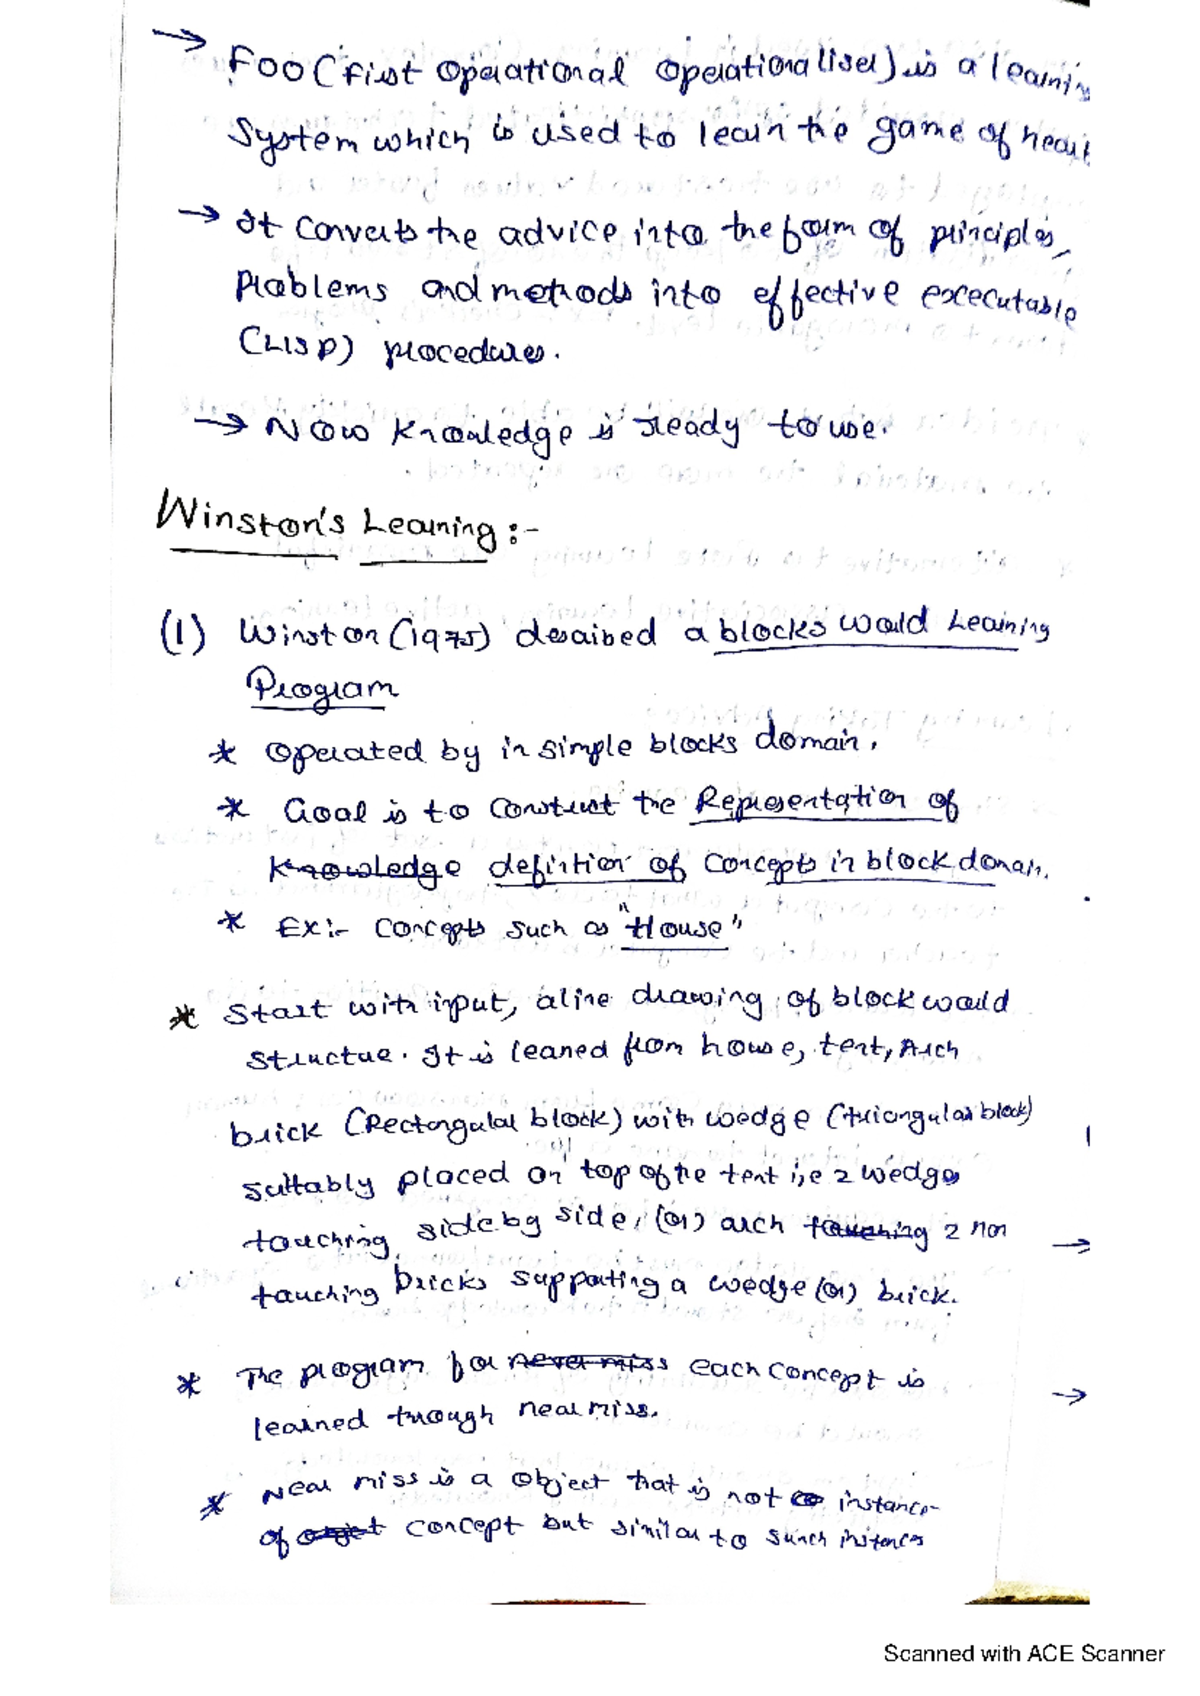 → FOO (First Operational Operationaliser) is a learning
System which is used to learn the game of heart
→ It converts the advice into the form of principles,
Problems and methods into effective excecutable
(LISP) procedures.
→ Now Knowledge is ready to use.
Winston's Learning :-
(1) Winston (1975) described a blocks world Learning
Program
* Operated by in simple blocks domain.
* Goal is to construct the Representation of
Knowledge definition of concepts in block domain.
* Ex:- Concepts such as "House"
* Start with input, a line drawing of block world
Structue. It is leaned from house, tent, Arch
brick (Rectangular block) with wedge (triangular block)
suitably placed on top of the tent i,e 2 wedge
touching side by side, (or) arch touching 2 non
touching bricks supporting a wedge (or) brick.
* The program for never miss each concept is
learned through near miss.
* Near miss is a object that is not instance
of object concept but similar to such instances
Scanned with ACE Scanner